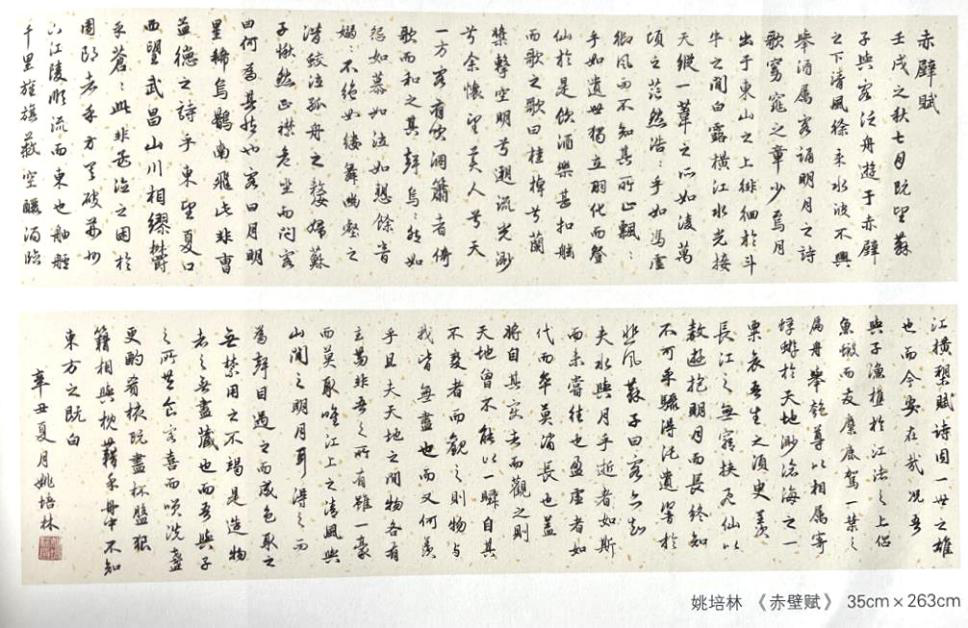 赤壁賦
壬戌之秋七月既望蘇
子與客泛舟遊于赤壁
之下清風徐来水波不興
舉酒属客誦明月之詩
歌窈窕之章少焉月
出于東山之上徘徊於斗
牛之間白露横江水光接
天縱一葦之所如凌萬
頃之茫然浩々乎如馮虚
御風而不知其所止飄々
乎如遺世獨立羽化而登
仙於是飲酒樂甚扣舷
而歌之歌曰桂棹兮蘭
槳擊空明兮遡流光渺
兮余懷望美人兮天
一方客有吹洞簫者倚
歌而和之其聲烏々然如
怨如慕如泣如愬餘音
嫋々不絶如縷舞幽壑之
潜蛟泣孤舟之嫠婦蘇
子愀然正襟危坐而問客
曰何為其然也客曰月明
星稀烏鵲南飛此非曹
孟德之詩乎東望夏口
西望武昌山川相繆欝
乎蒼々此非孟德之困於
周郎者乎方其破荊州
下江陵順流而東也舳艫
千里旌旗蔽空釃酒臨
江横槊賦詩固一世之雄
也而今安在哉况吾
與子漁樵於江渚之上侣
魚蝦而友麋鹿駕一葉之
扁舟舉匏尊以相属寄
蜉蝣於天地渺滄海之一
粟哀吾生之須臾羡
長江之無窮挟飛仙以
遨遊抱明月而長終知
不可乎驟得托遺響於
悲風蘇子曰客亦知
夫水與月乎逝者如斯
而未嘗往也盈虚者如
代而卒莫消長也蓋
將自其變者而觀之則
天地曾不能以一瞬自其
不變者而觀之則物與
我皆無盡也而又何羡
乎且夫天地之間物各有
主苟非吾之所有雖一毫
而莫取唯江上之清風與
山間之明月耳得之而
為聲目遇之而成色取之
無禁用之不竭是造物
者之無盡藏也而吾與子
之所共食客喜而笑洗盞
更酌肴核既盡杯盤狼
籍相與枕藉乎舟中不知
東方之既白
辛丑夏月姚培林
姚培林 《赤壁赋》 35cm×263cm